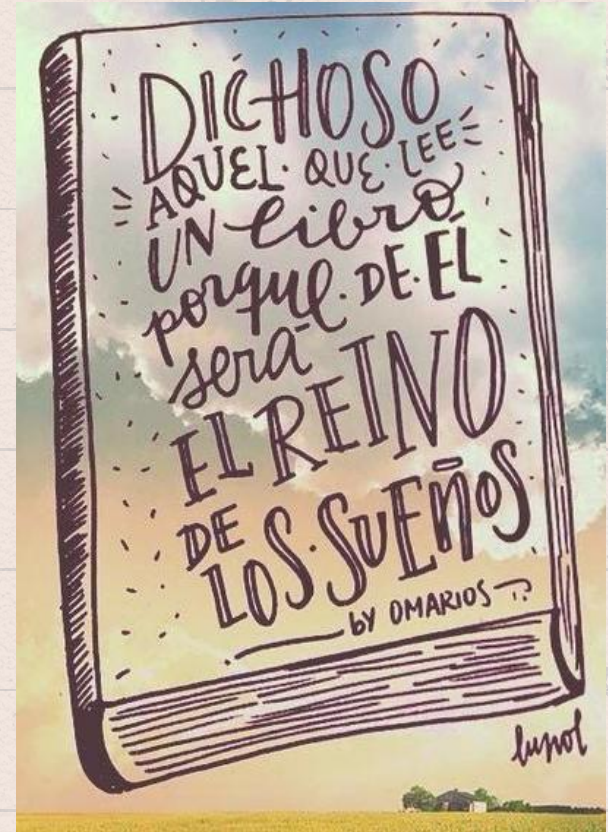 DICHOSO
AQUEL · QUE · LEE
UN libro
porque · DE · ÉL
será
EL REINO
DE
LOS · SUEÑOS
by OMARIOS